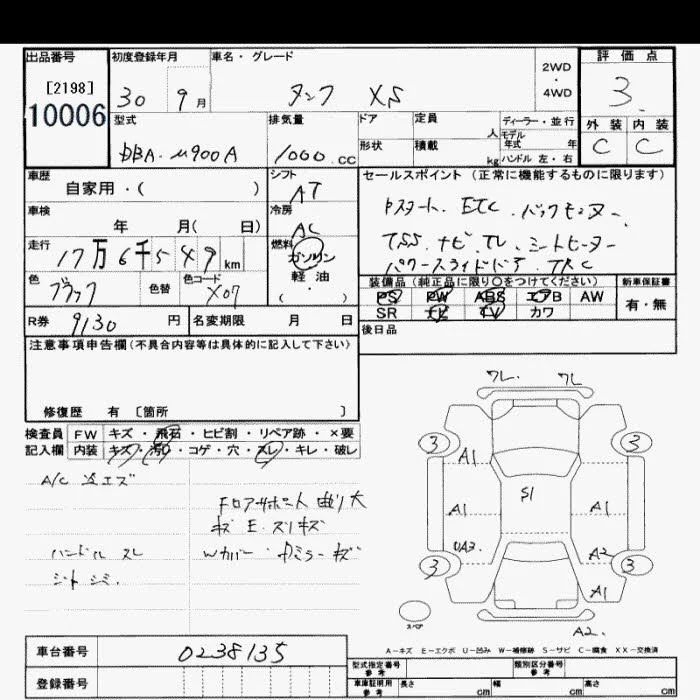 出品番号
[2198]
10006
初度登録年月
30 9月
車名・グレード
タンク XS
2WD
・
4WD
評価点
3.
外装 内装
C C
型式
DBA-M900A
排気量
1000.cc
ドア
形状
定員
人
積載
kg
ディーラー・並行
モデル年式 年
ハンドル 左・右
車歴
自家用・( )
シフト
AT
車検
年 月( 日)
冷房
AC
走行
17万6千549km
燃料
ガソリン
軽・油
( ・ )
色
ブラック
色替
色コード
X07
R券
9130円
名変期限 月 日
セールスポイント(正常に機能するものに限ります)
Pスタート. ETC. バックモニター
TSS. ナビ. TV. シートヒーター
パワースライドドア. TRC
装備品(純正品に限り〇をつけてください)
新車保証書
PS PW ABS エアB AW
SR ナビ TV カワ
有・無
後日品
注意事項申告欄(不具合内容等は具体的に記入して下さい)
修復歴 有 〔箇所 〕
検査員
記入欄
FW キズ・飛石・ヒビ割・リペア跡・×要
内装 キズ・汚れ・コゲ・穴・スレ・キレ・破レ
A/C 冷エズ
Fロアサポート曲り大
キズ E. スリキズ
ハンドル スレ
Wカバー・Rミラーキズ
シートシミ.
ワレ. ワレ
3 3
A1
S1
A1 A1
UA3 A2
3 3
A1
スペア
A2.
A-キズ E-エクボ U-凹み W-補修跡 S-サビ C-腐食 XX-交換済
車台番号
0238135
登録番号
型式指定番号
参考
類別区分番号
参考
車庫証明用
参考
長さ cm
幅 cm
高さ cm